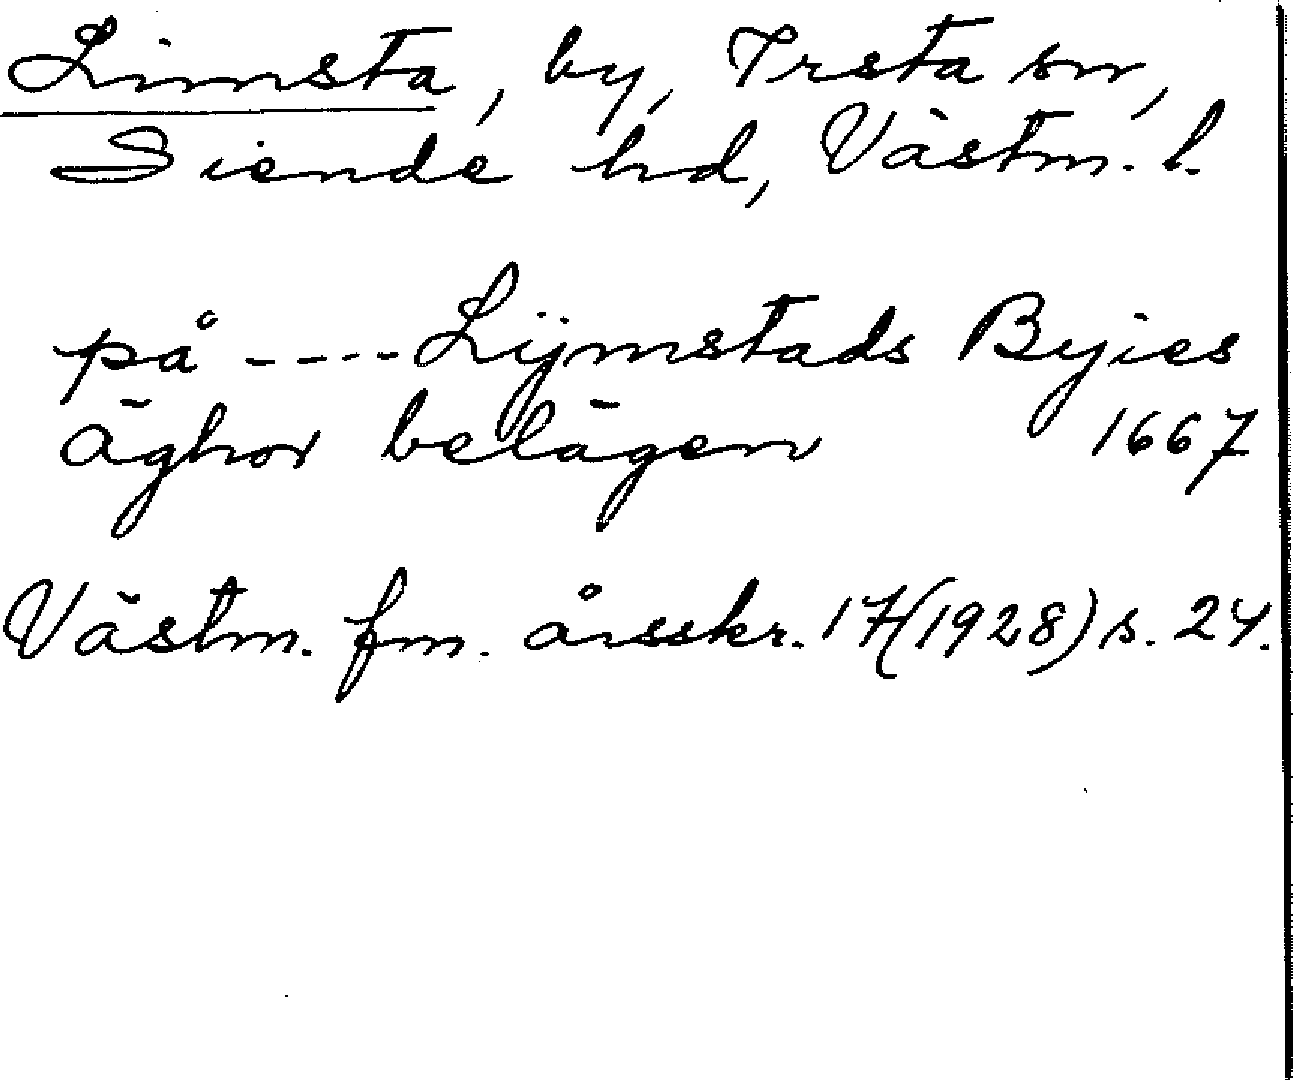 Limsta, by, Irsta sn,
Siende hd, Västm. l.
på ---- Lijmstads Byies
äghor belägen 1667
Västm. fm. årsskr. 17(1928) s. 24.